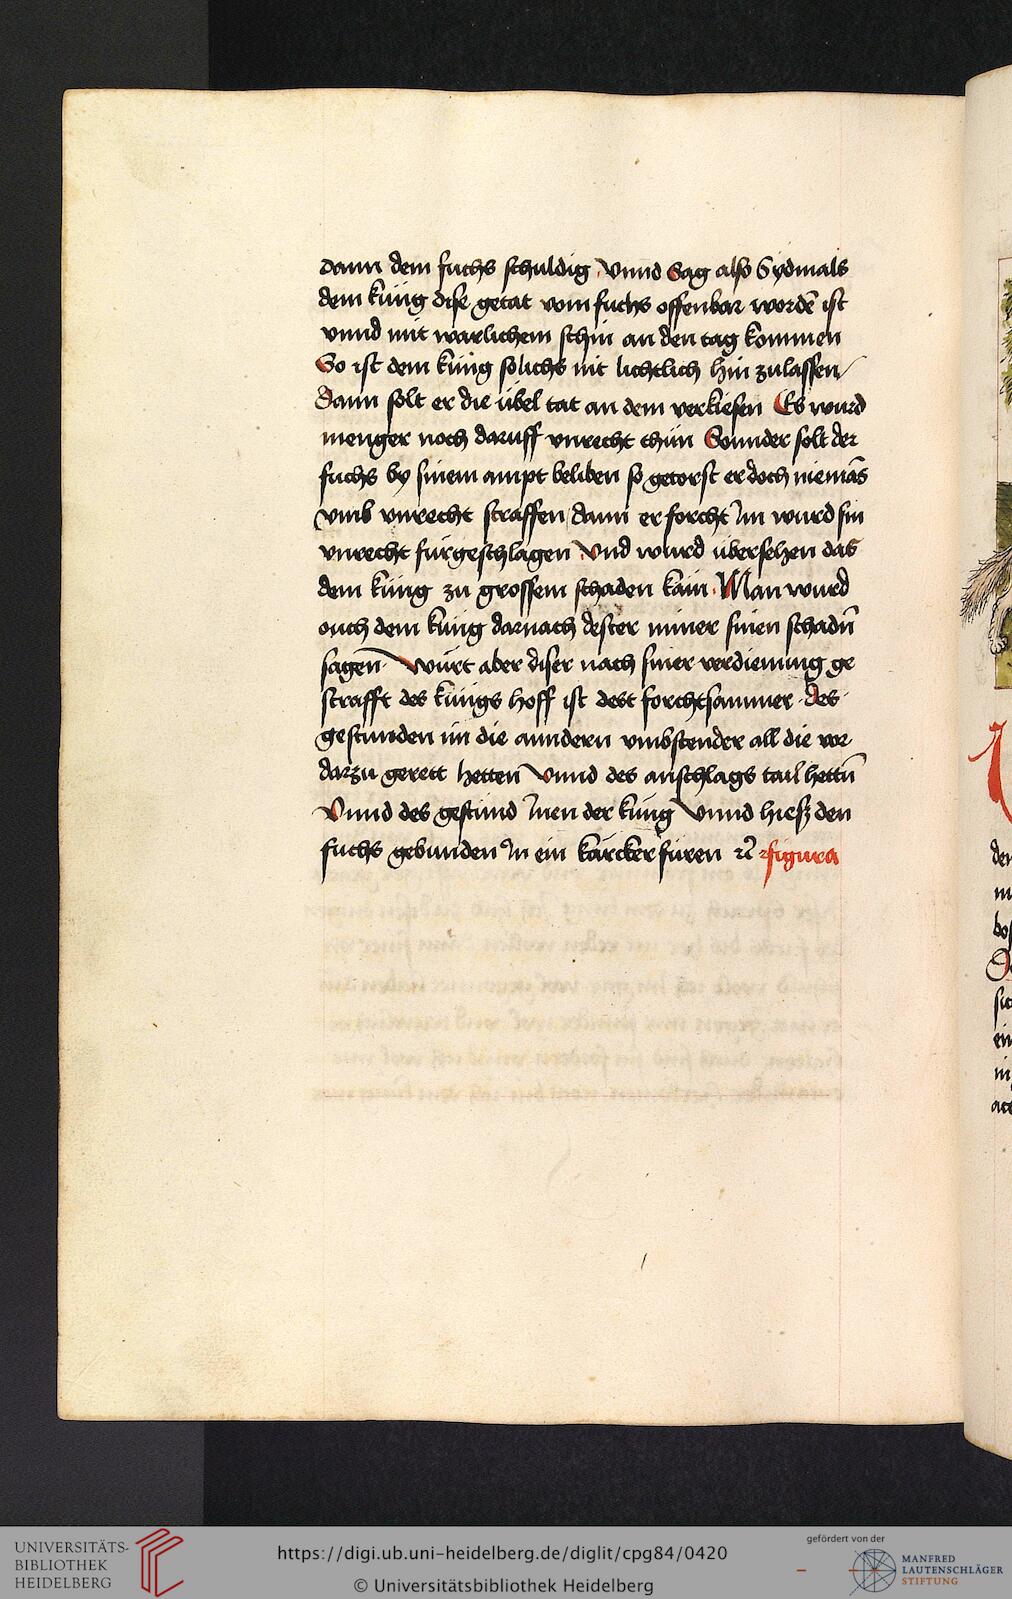 dann dem fuchs schuldig vnnd Sag also Sydmals
dem kúng dise getat vom fuchs offenbar wordē ist
vnnd mit warlichem schin an den tag kommen
So ist dem kúng sölichs nit lichtlich hin zulassen/
Dann solt er die úbel tat an dem verkiesen Es wurd
menger noch daruff vnrecht thůn Sonnder solt der
fuchs by sinem ampt beliben so getorst er doch niemās
vmb vnrecht straffen / dann er forcht im wurd sin
vnrecht fúrgeschlagen vnd wurd úbersehen das
dem kúng zu grossem schaden käm · Man wurd
ouch dem kúng darnach dester miner sinen schadn̄
sagen · würt aber diser nach siner verdienung ge
strafft des kúngs hoff ist dest forchtsammer · des
gestunden im die anndern vmbstender all die vor
darzu gerett hetten vnnd des anschlags tail hettn̄
Vnnd des gestůnd inen der kúng vnnd hiesz den
fuchs gebunden in ein kärcker fůren rc̄ figura
den
bos
ein
UNIVERSITÄTS-
BIBLIOTHEK
HEIDELBERG
https://digi.ub.uni-heidelberg.de/diglit/cpg84/0420
© Universitätsbibliothek Heidelberg
gefördert von der
MANFRED
LAUTENSCHLÄGER
STIFTUNG